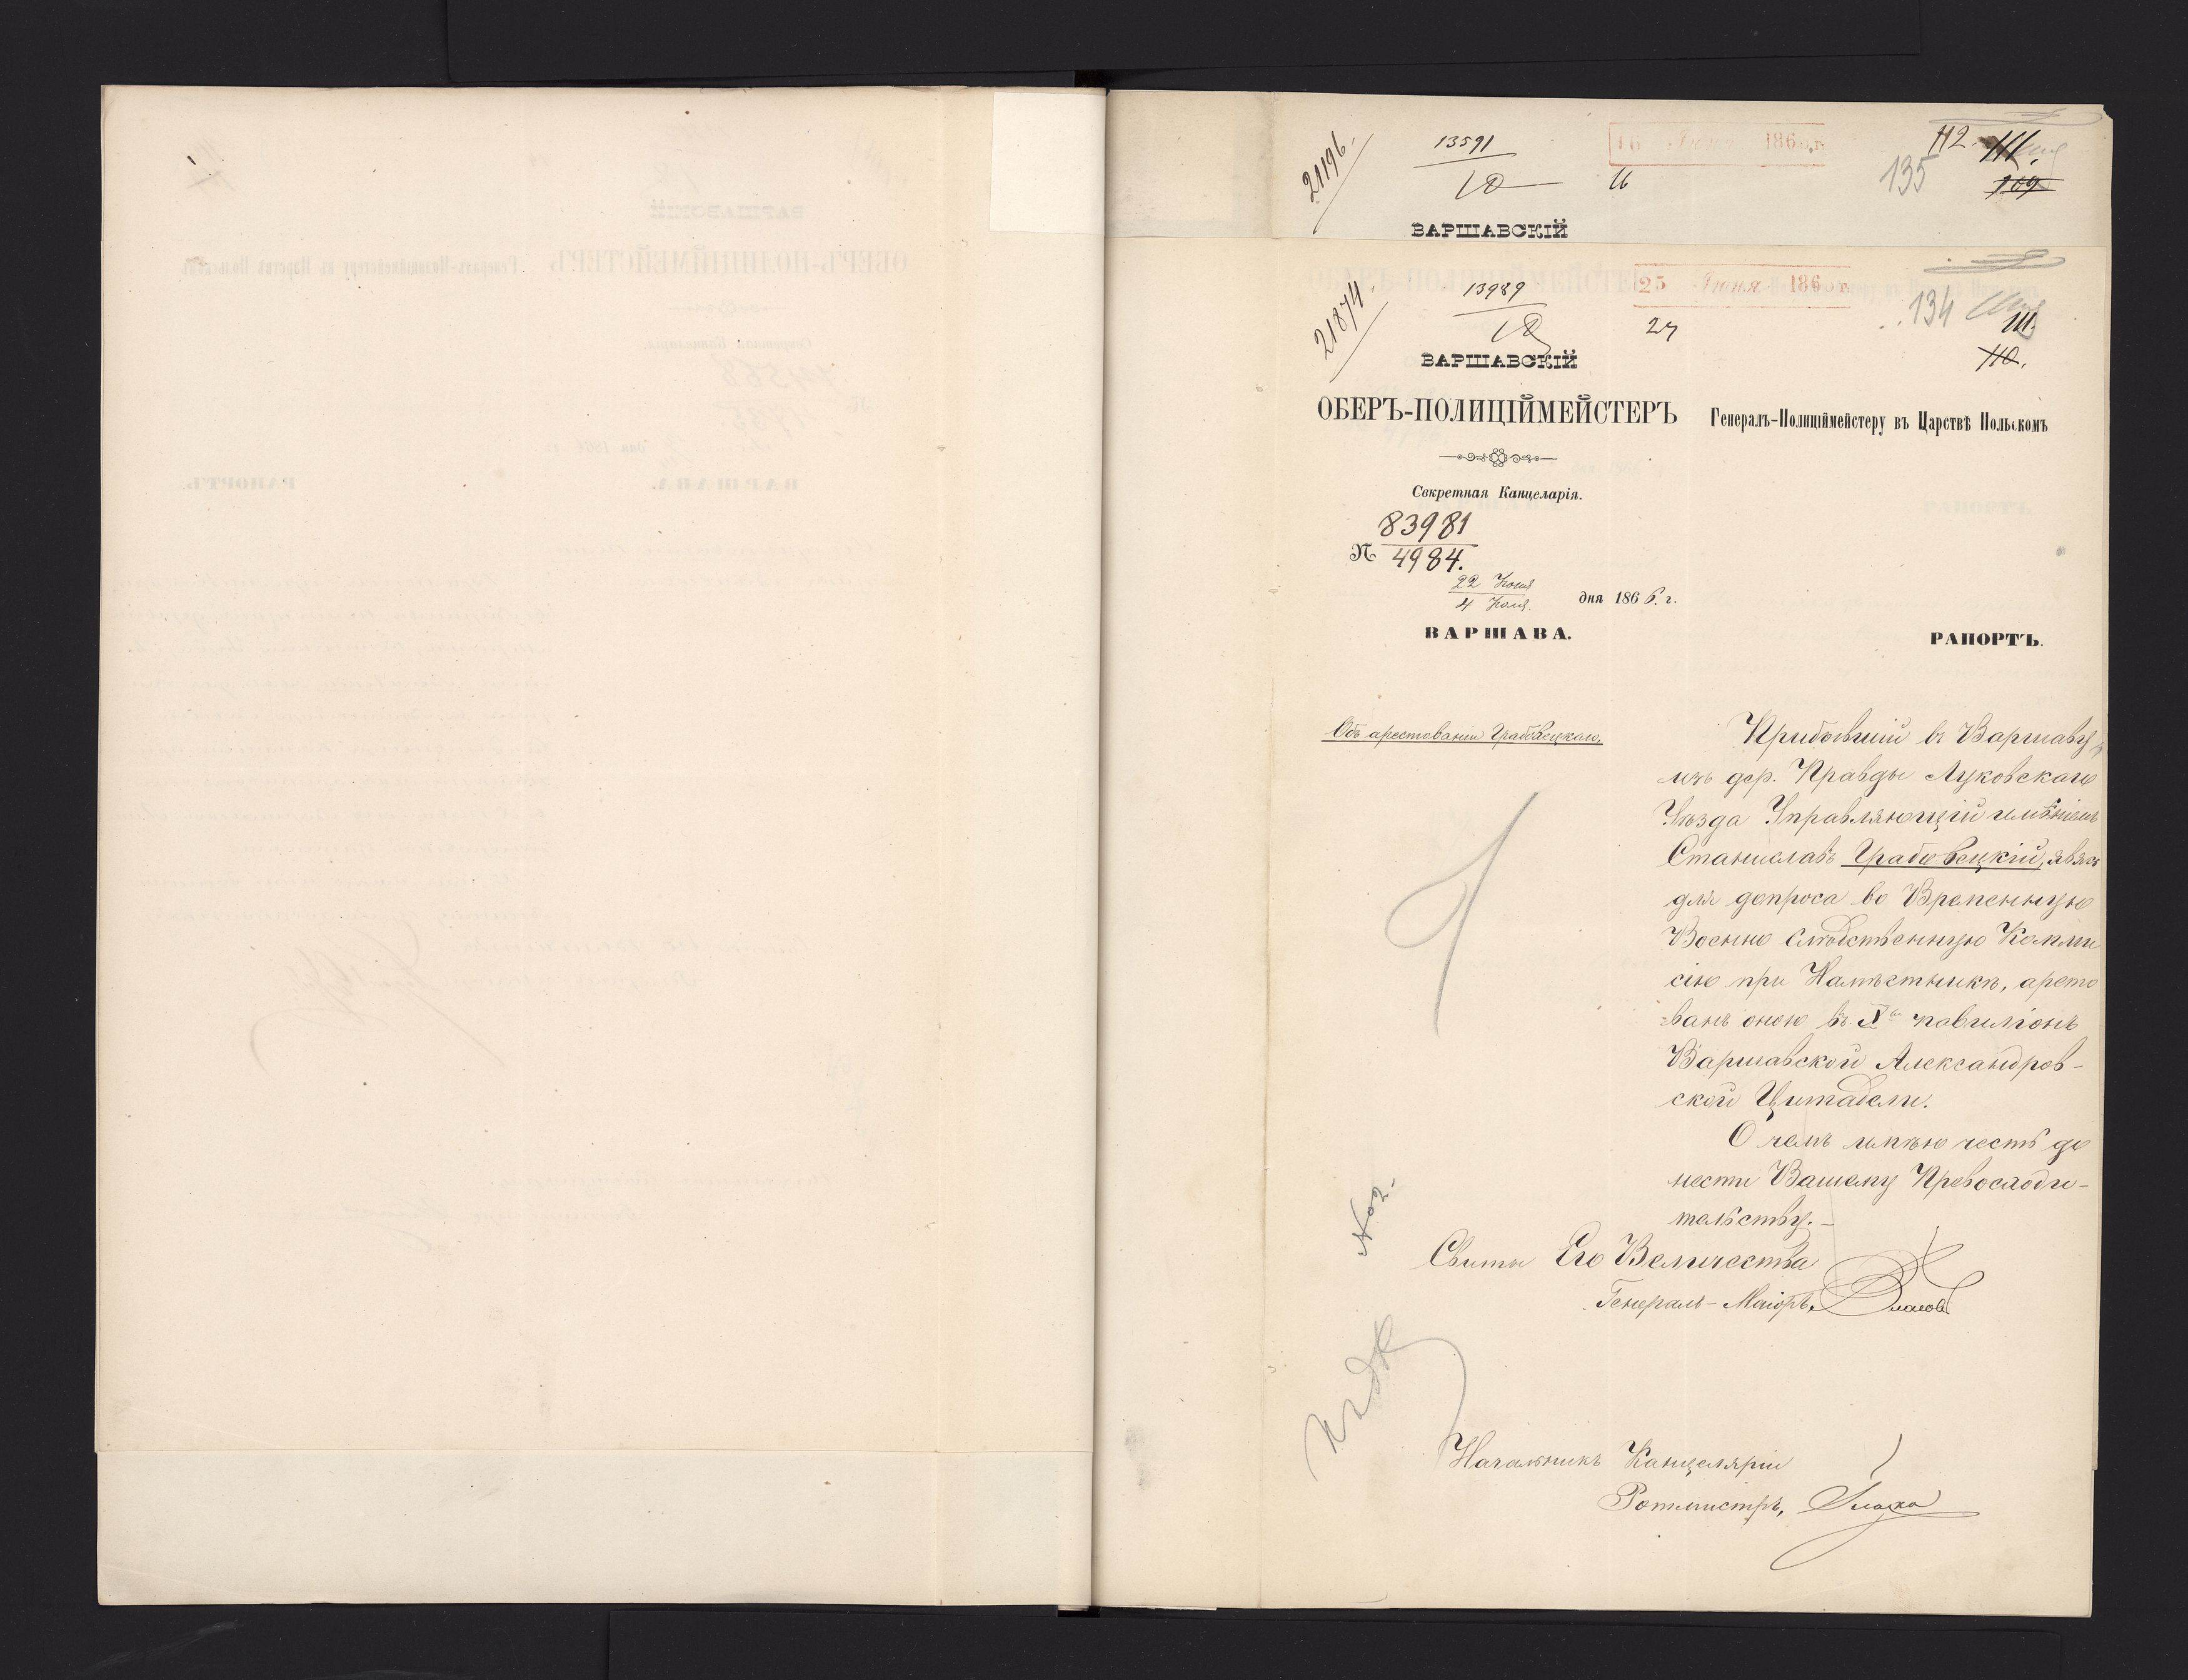 21196.
13591
10
16 Іюня 186 г.
16
112.
111.
135
109
ВАРШАВСКІЙ
21874.
13989
10
25 Іюня 186 г.
27
134
111.
110.
ВАРШАВСКІЙ
ОБЕРЪ-ПОЛИЦІЙМЕЙСТЕРЪ
Генералъ-Полиціймейстеру въ Царствѣ Польскомъ
Секретная Канцеларія.
83981
№ 4984.
22 Іюня
4 Іюля. дня 1866. г.
ВАРШАВА.
РАПОРТЪ.
Объ арестованіи Грабовецкаго.
Прибывшій въ Варшаву
изъ дер. Правды Луковскаго
Уѣзда Управляющій имѣніемъ
Станиславъ Грабовецкій, явясь
для допроса во Временную
Военно Слѣдственную Комми
сію при Намѣстникѣ, аресто
ванъ оною въ X павиліонъ
Варшавской Александров-
ской Цитадели.
О чемъ имѣю честь до
нести Вашему Превосходи-
тельству.-
Свиты Его Величества
Генералъ-Маіоръ,
№ 2.
Начальникъ Канцеляріи
Ротмистръ,